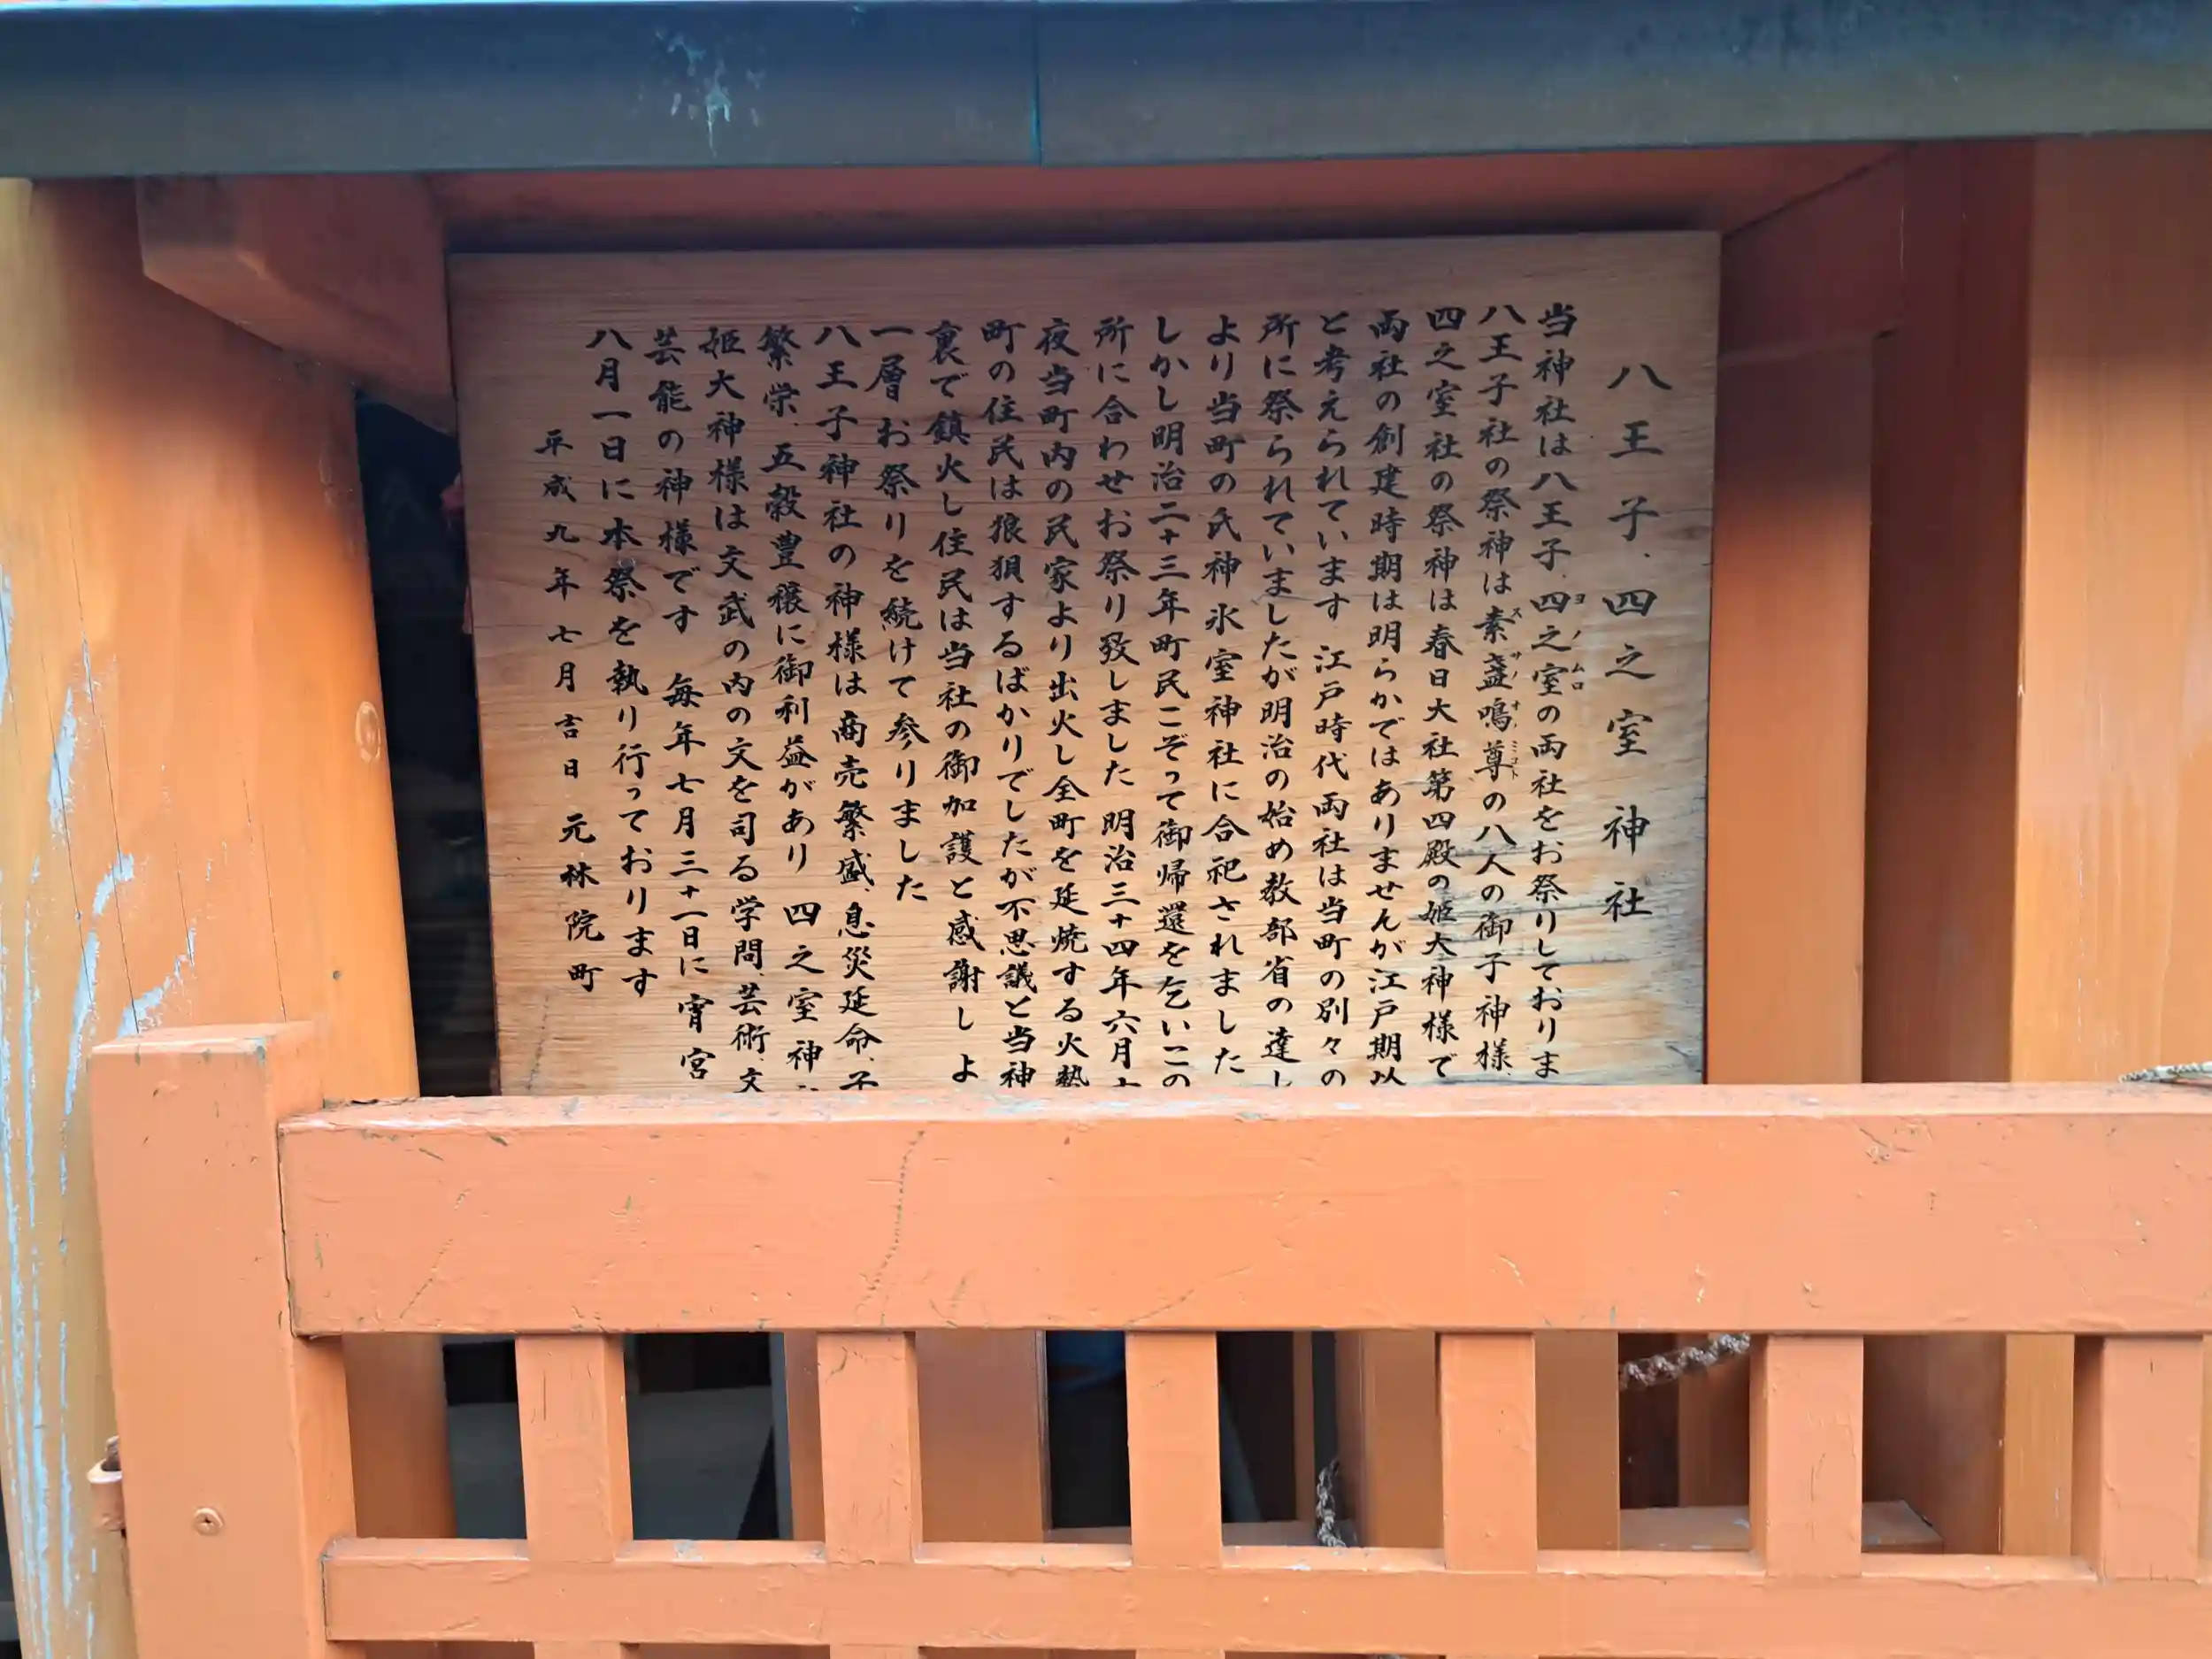 八王子、四之室神社
当神社は八王子、四之室の両社をお祭りしておりま
ヨノムロ
八王子社の祭神は素盞鳴尊の八人の御子神様、
スサノオノミコト
四之室社の祭神は春日大社第四殿の姫大神様で
両社の創建時期は明らかではありませんが江戸期以
と考えられています 江戸時代両社は当町の別々の
所に祭られていましたが明治の始め教部省の達し
より当町の氏神氷室神社に合祀されました
しかし明治二十三年町民こぞって御帰還を乞いこの
所に合わせお祭り致しました 明治三十四年六月十
夜当町内の民家より出火し全町を延焼する火勢
町の住民は狼狽するばかりでしたが不思議と当神
裏で鎮火し住民は当社の御加護と感謝しよ
一層お祭りを続けて参りました
八王子神社の神様は商売繁盛、息災延命、子
繁栄、五穀豊穣に御利益があり 四之室神
姫大神様は文武の内の文を司る学問、芸術、文
芸能の神様です 毎年七月三十一日に宵宮
八月一日に本祭を執り行っております
平成九年七月吉日 元林院町